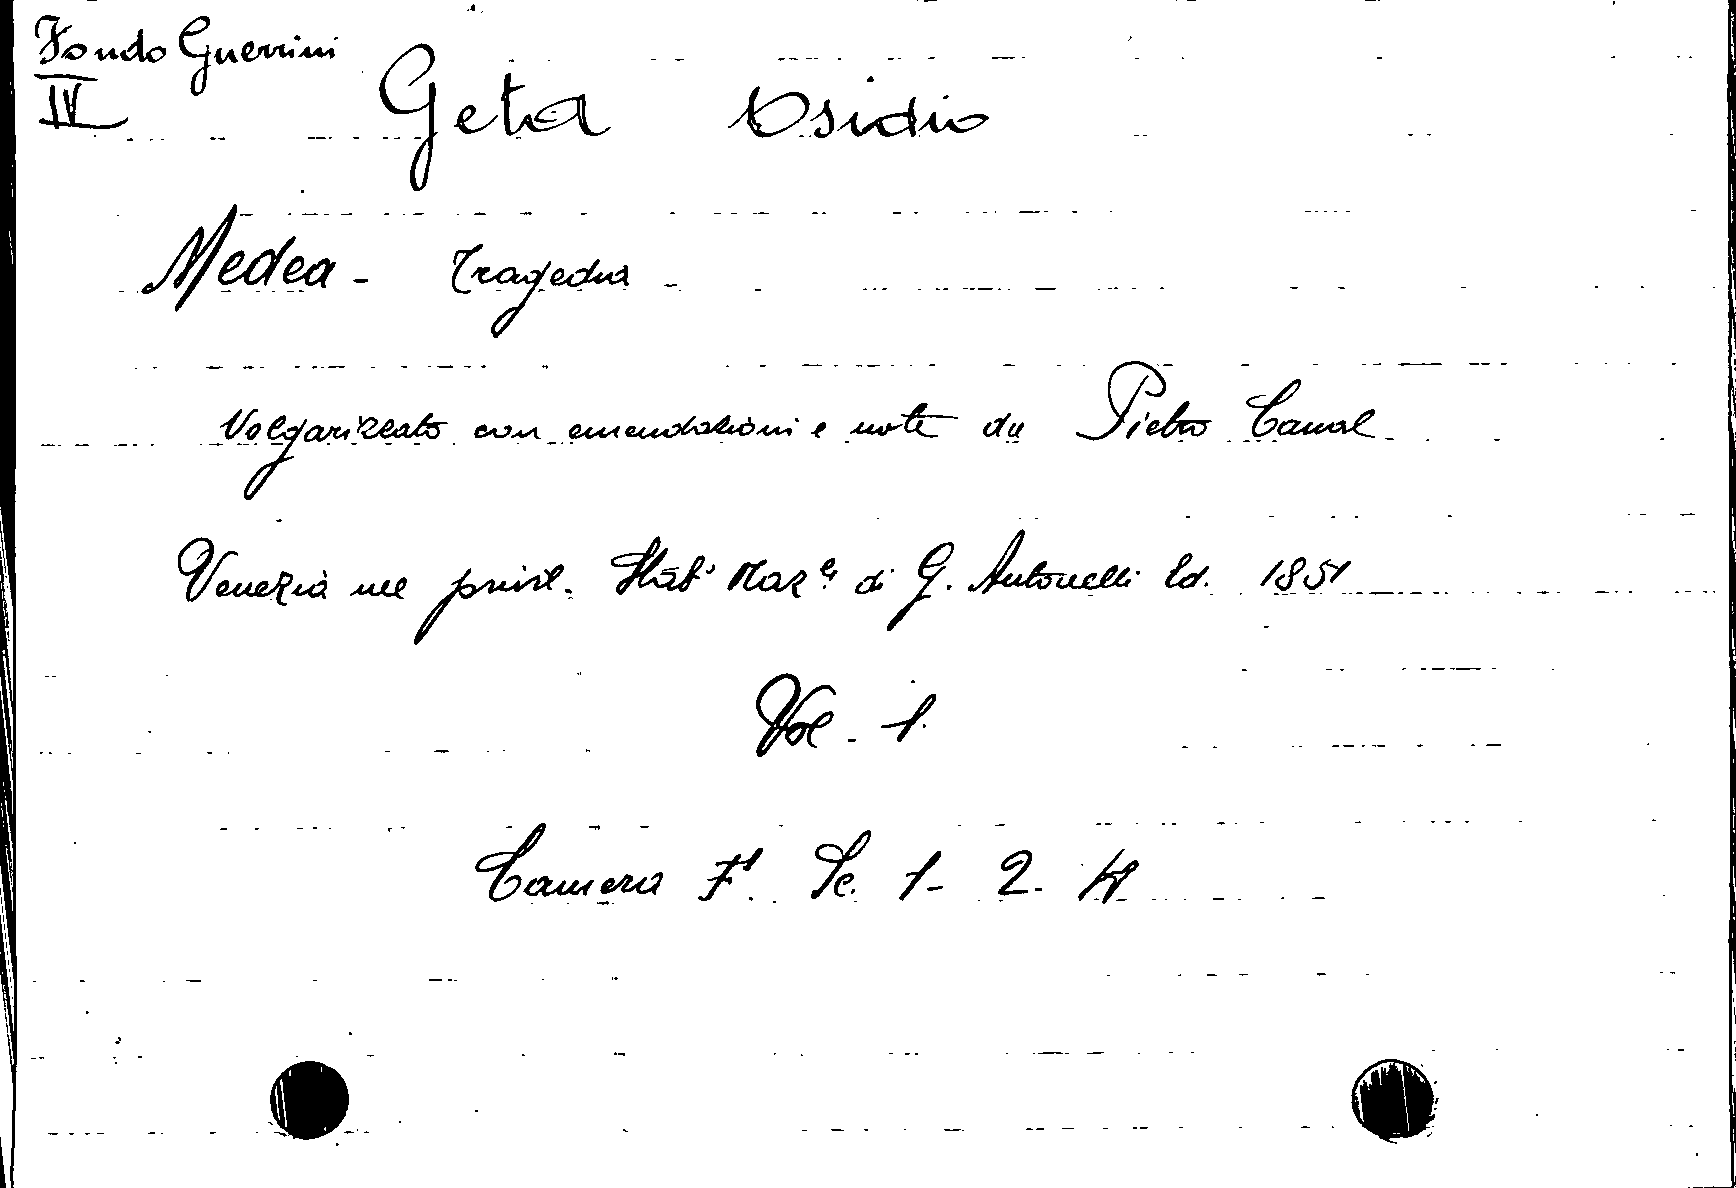 Fondo Guerrini
IV
Geta Osidio
Medea - Tragedia
Volgarizzato con emendazioni e note da Pietro Canal
Venezia nel privil. Stab° Naz.le di G. Antonelli Ed. 1851
Vol. 1.
Camera F¹. Sc. 1- 2-